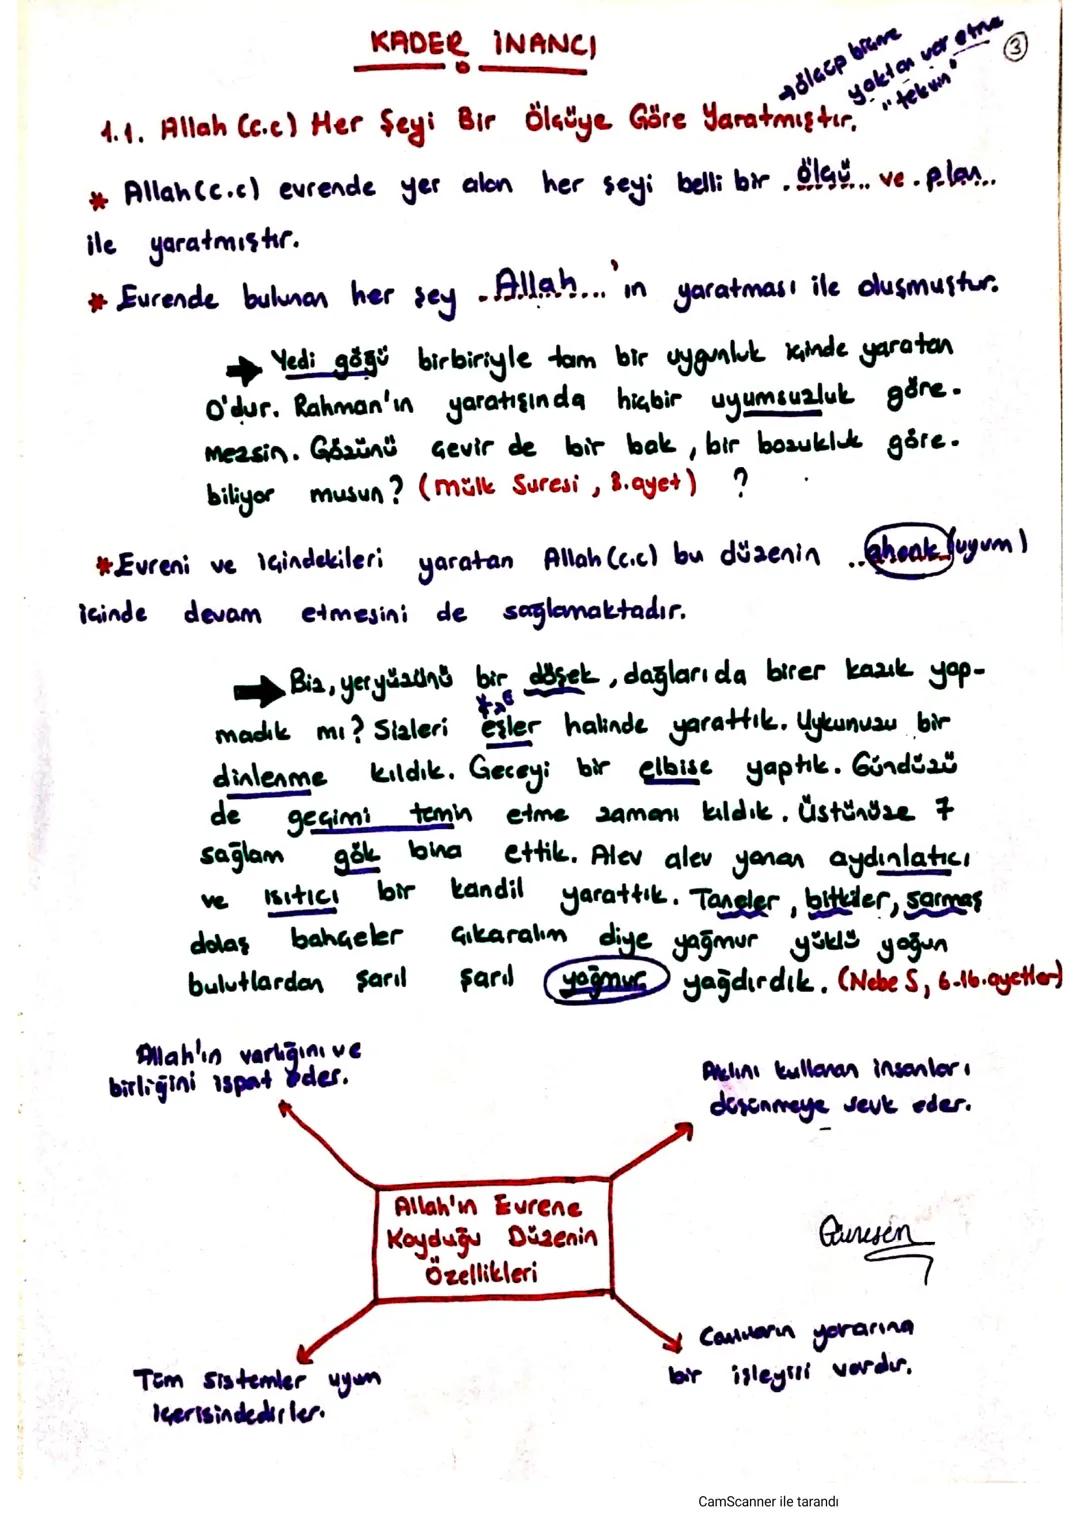 KADER İNANCI
3
→ölçüp biçme
yoktan var etme
"tekvin"
1.1. Allah (c.c) Her Şeyi Bir Ölçüye Göre Yaratmıştır.
* Allah (c.c) evrende yer alan her şeyi belli bir .ölçü... ve .plan...
ile yaratmıştır.
* Evrende bulunan her şey .Allah...'ın yaratması ile oluşmuştur.
→ Yedi göğü birbiriyle tam bir uygunluk içinde yaratan
O'dur. Rahman'ın yaratışında hiçbir uyumsuzluk göre-
mezsin. Gözünü çevir de bir bak, bir bozukluk göre-
biliyor musun? (mülk Suresi, 3.ayet) ?
* Evreni ve içindekileri yaratan Allah (c.c) bu düzenin ..ahenk (uyum)
içinde devam etmesini de sağlamaktadır.
→ Biz, yeryüzünü bir döşek, dağları da birer kazık yap-
madık mı? Sizleri eşler halinde yarattık. Uykunuzu bir
dinlenme kıldık. Geceyi bir elbise yaptık. Gündüzü
de geçimi temin etme zamanı kıldık. Üstünüze 7
sağlam gök bina ettik. Alev alev yanan aydınlatıcı
ve ısıtıcı bir kandil yarattık. Taneler, bitkiler, sarmaş
dolaş bahçeler çıkaralım diye yağmur yüklü yoğun
bulutlardan şarıl şarıl yağmur yağdırdık. (Nebe S, 6-16.ayetler)
Allah'ın varlığını ve
birliğini ispat eder.
Aklını kullanan insanları
düşünmeye sevk eder.
Allah'ın Evrene
Koyduğu Düzenin
Özellikleri
Tüm sistemler uyum
içerisindedirler.
Canlıların yararına
bir işleyişi vardır.
CamScanner ile tarandı